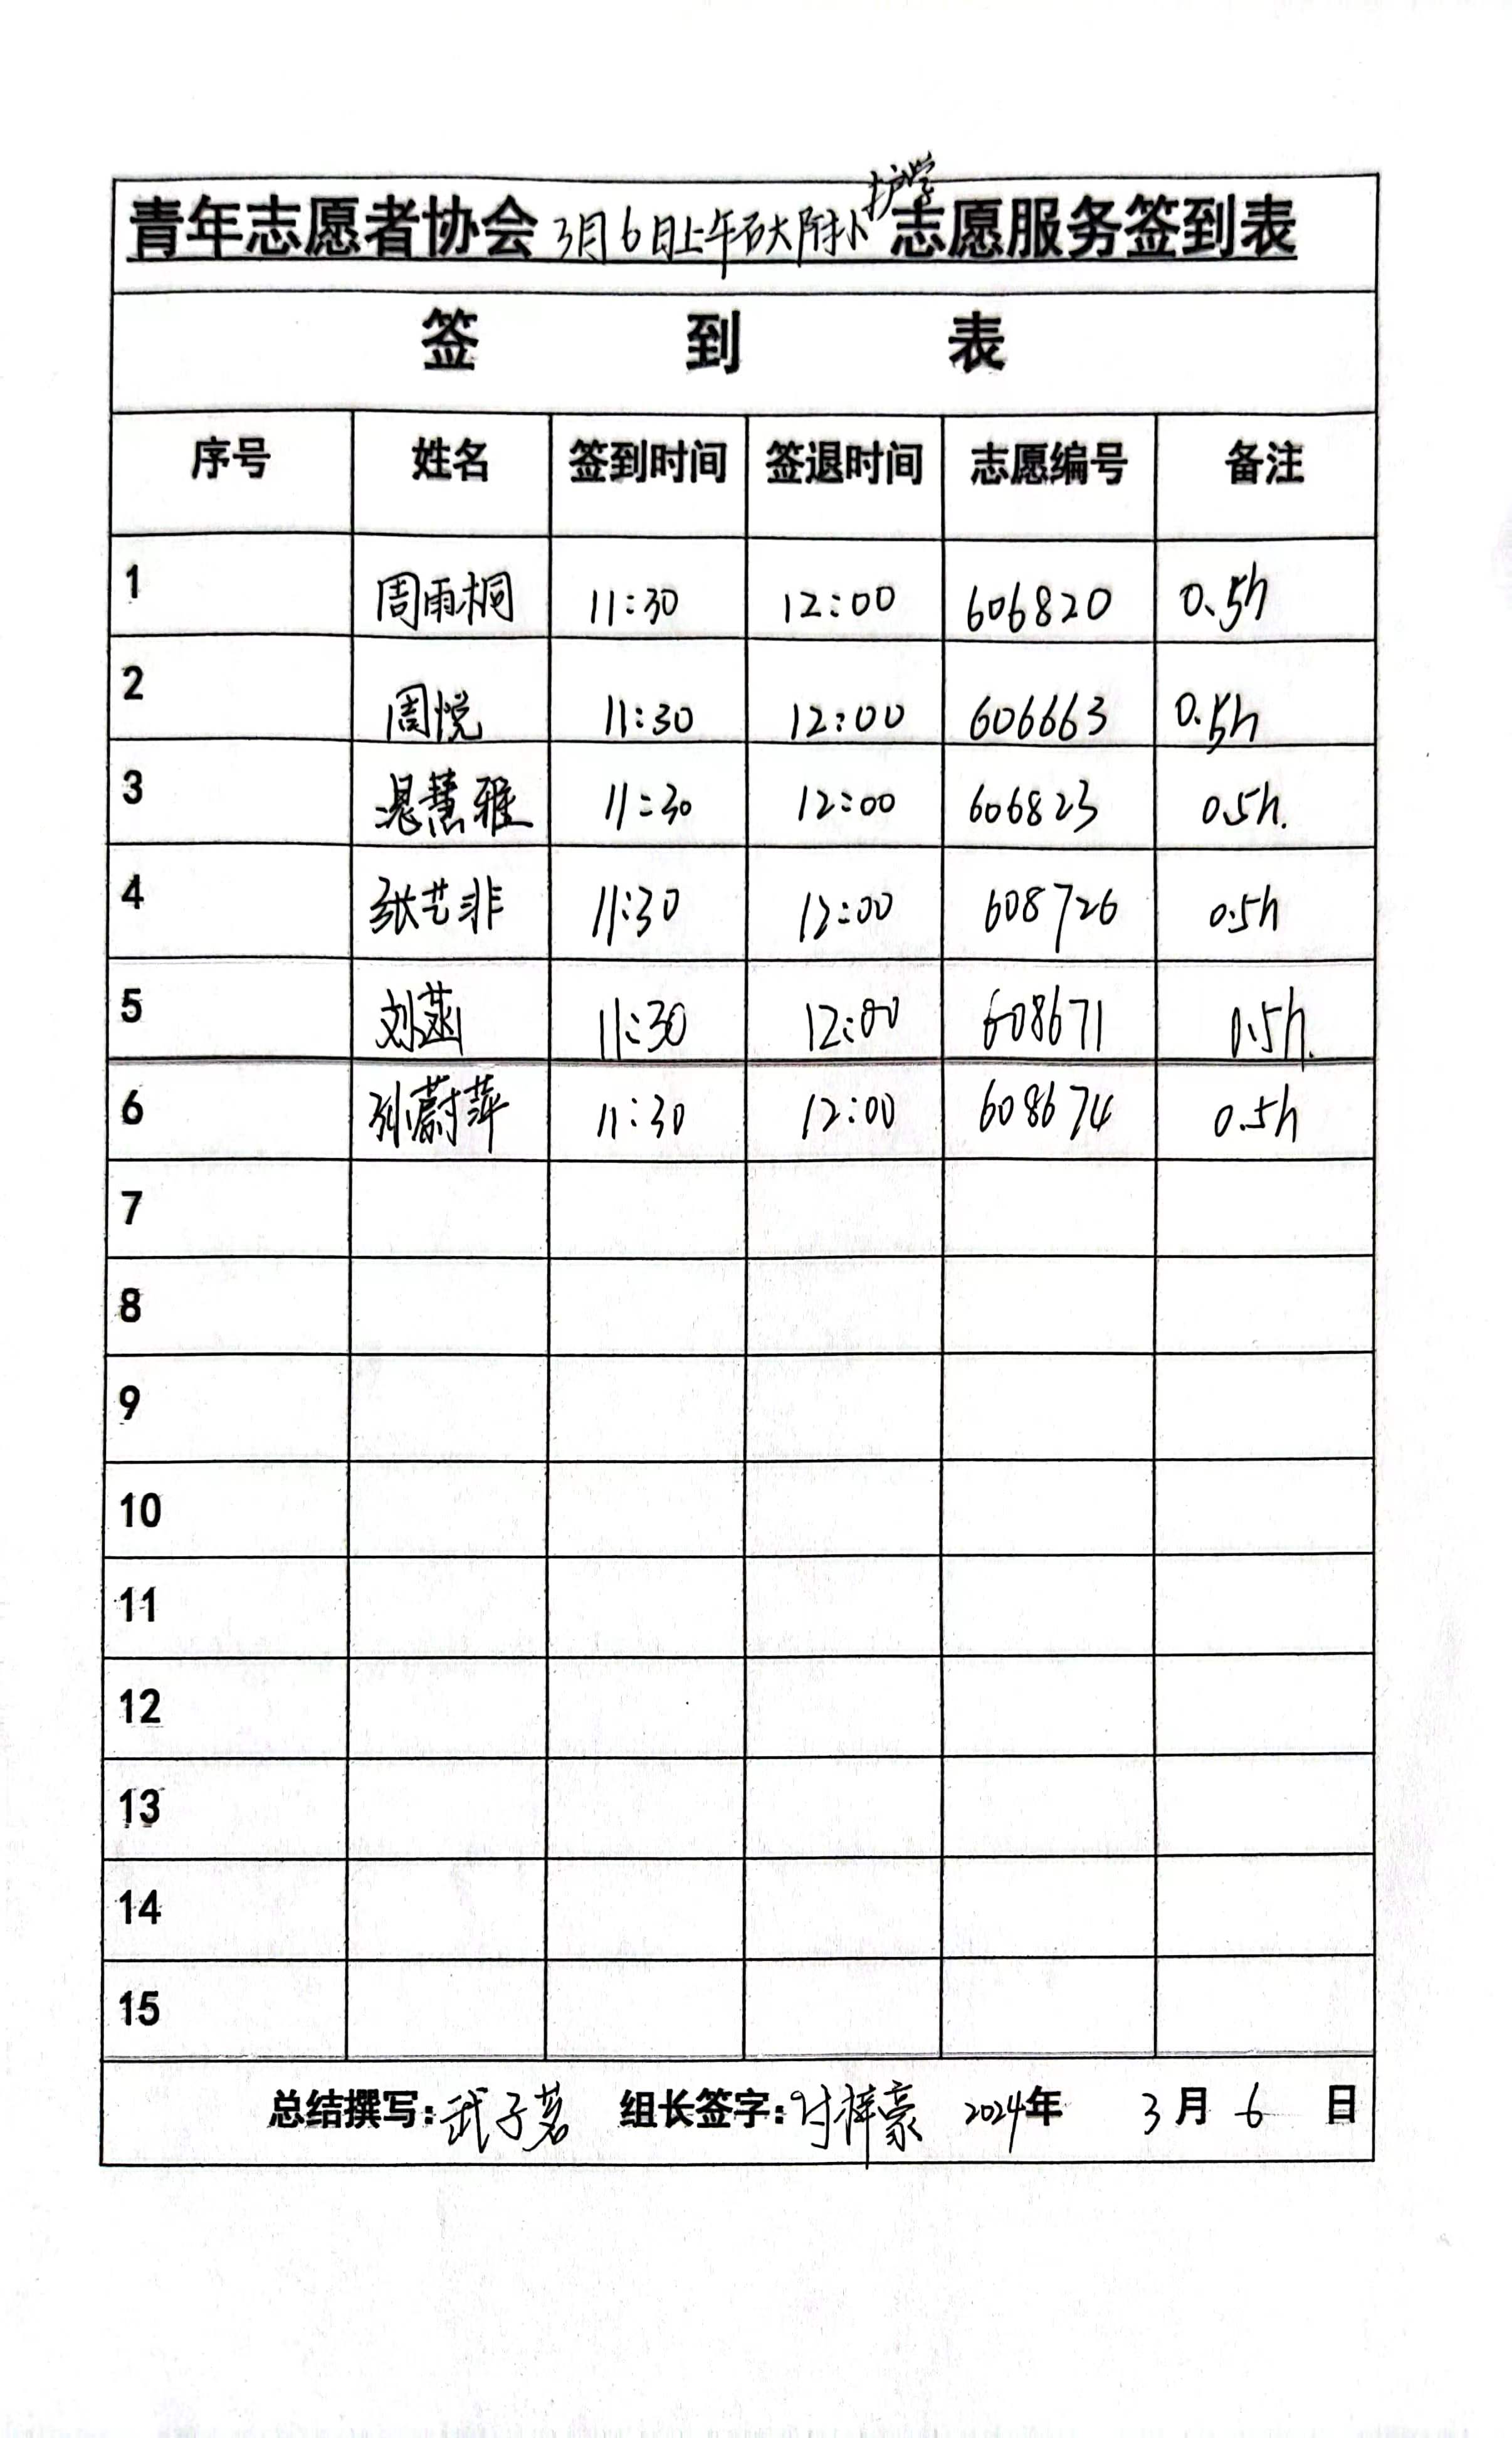 青年志愿者协会3月6日上午石大附小护学志愿服务签到表
签 到 表
序号 姓名 签到时间 签退时间 志愿编号 备注
1 周雨桐 11:30 12:00 606820 0.5h
2 周悦 11:30 12:00 606663 0.5h
3 慧雅 11:30 12:00 606823 0.5h.
4 张艺非 11:30 12:00 608726 0.5h
5 刘菡 11:30 12:00 608671 0.5h.
6 孙蔚萍 11:30 12:00 608674 0.5h
7
8
9
10
11
12
13
14
15
总结撰写:武子茗 组长签字:付梓豪 2024年 3月6日